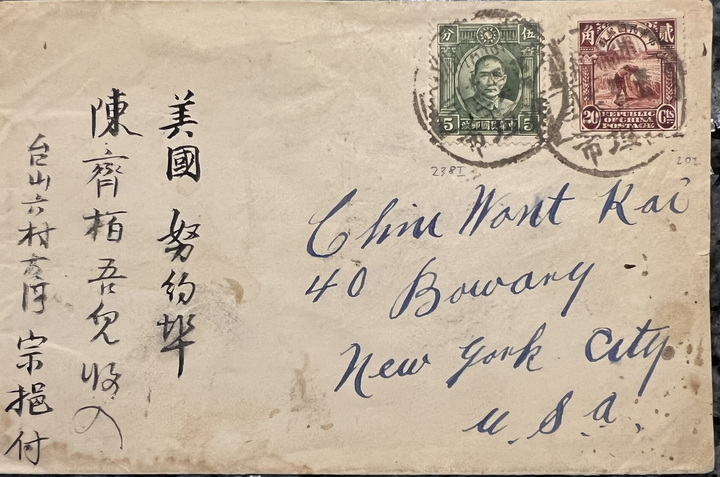 美國 努約埠
陳齊栢吾兒收入
台山六村 宗挹付
Chin Wont Kai
40 Bowary
New York City
U.S.A.
分 伍
5 5
角 貳
20 Cts
REPUBLIC
OF CHINA
POSTAGE
市
市
238I
202